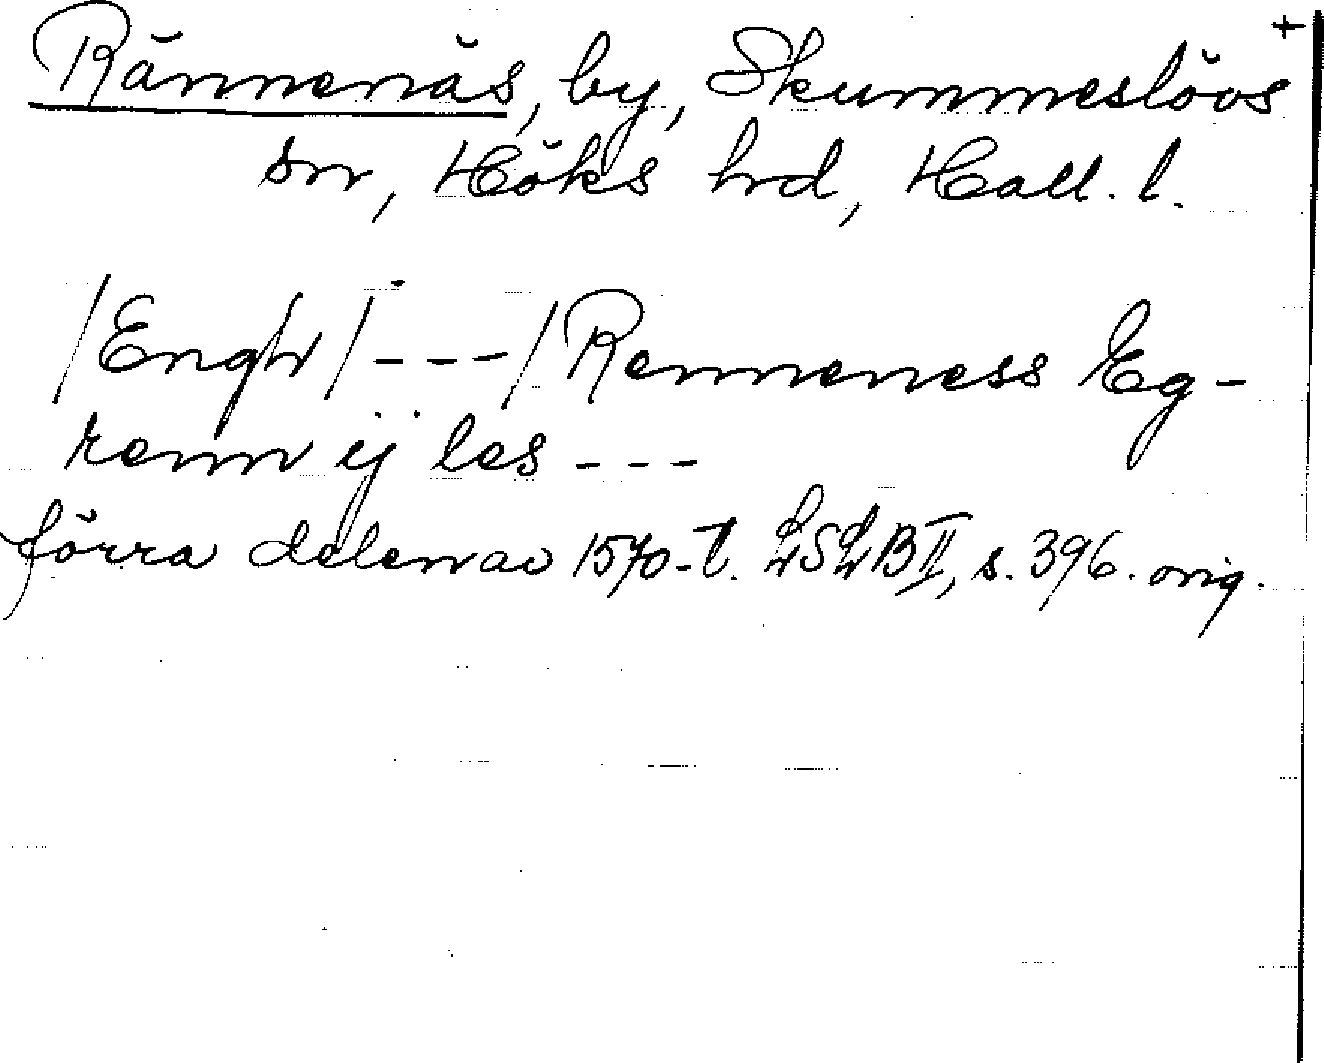 +
Rännenäs, by, Skummeslövs
sn, Höks hrd, Hall. l.
/Engh/---/Renneness Eg-
renn ij les ---
förra delen av 1570-t. LSLB II, s. 396. orig.